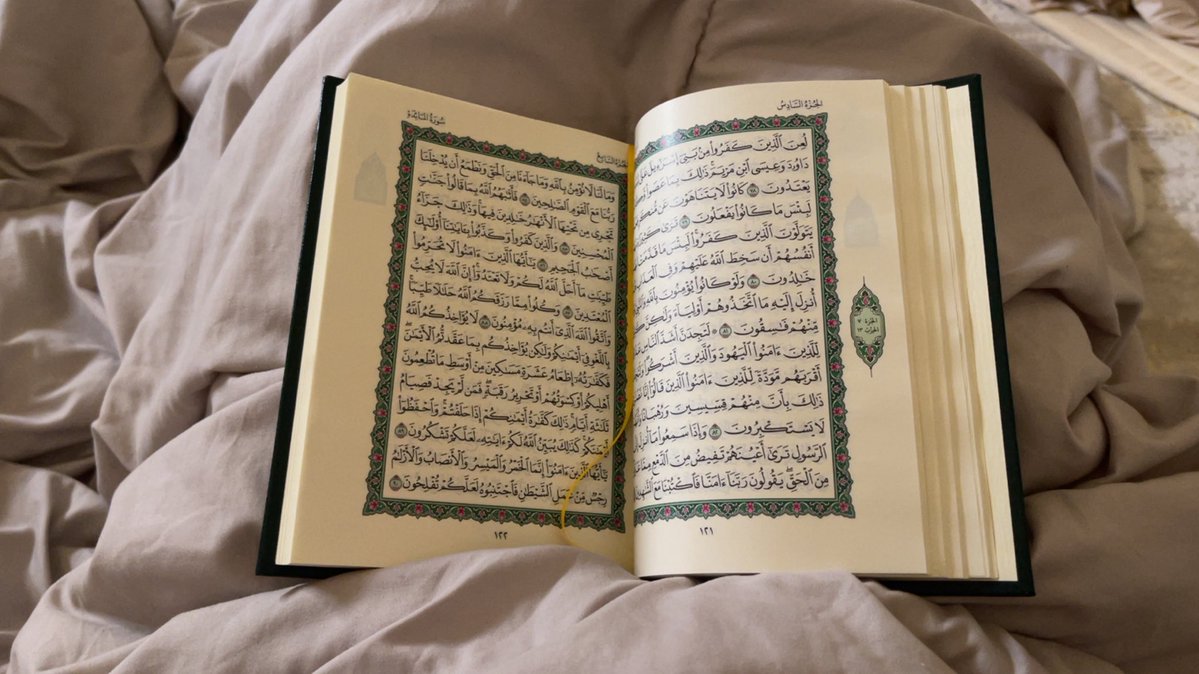 الجُزءُ السَّادِسُ
لُعِنَ ٱلَّذِينَ كَفَرُوا۟ مِنۢ بَنِىٓ إِسْرَٰٓءِيلَ عَلَىٰ
دَاوُۥدَ وَعِيسَى ٱبْنِ مَرْيَمَ ۚ ذَٰلِكَ بِمَا عَصَوا۟
يَعْتَدُونَ ٧٨ كَانُوا۟ لَا يَتَنَاهَوْنَ عَن
لَبِئْسَ مَا كَانُوا۟ يَفْعَلُونَ ٧٩ تَرَىٰ
يَتَوَلَّوْنَ ٱلَّذِينَ كَفَرُوا۟ ۚ لَبِئْسَ مَا قَدَّمَتْ
أَنفُسُهُمْ أَن سَخِطَ ٱللَّهُ عَلَيْهِمْ وَفِى
خَٰلِدُونَ ٨٠ وَلَوْ كَانُوا۟ يُؤْمِنُونَ بِٱللَّهِ
أُنزِلَ إِلَيْهِ مَا ٱتَّخَذُوهُمْ أَوْلِيَآءَ وَلَٰكِنَّ
مِّنْهُمْ فَٰسِقُونَ ٨١ ۞ لَتَجِدَنَّ أَشَدَّ ٱلنَّاسِ
لِّلَّذِينَ ءَامَنُوا۟ ٱلْيَهُودَ وَٱلَّذِينَ أَشْرَكُوا۟
أَقْرَبَهُم مَّوَدَّةً لِّلَّذِينَ ءَامَنُوا۟ ٱلَّذِينَ قَالُوٓا۟ إِنَّا
ذَٰلِكَ بِأَنَّ مِنْهُمْ قِسِّيسِينَ وَرُهْبَانًا
لَا يَسْتَكْبِرُونَ ٨٢ وَإِذَا سَمِعُوا۟ مَآ أُنزِلَ
ٱلرَّسُولِ تَرَىٰٓ أَعْيُنَهُمْ تَفِيضُ مِنَ ٱلدَّمْعِ مِمَّا
مِنَ ٱلْحَقِّ ۖ يَقُولُونَ رَبَّنَآ ءَامَنَّا فَٱكْتُبْنَا مَعَ
الجزء ٧
الحزب ١٣
١٢١
سُورَةُ المَائِدَةِ
الجُزءُ السَّابِعُ
وَمَا لَنَا لَا نُؤْمِنُ بِٱللَّهِ وَمَا جَآءَنَا مِنَ ٱلْحَقِّ وَنَطْمَعُ أَن يُدْخِلَنَا
رَبُّنَا مَعَ ٱلْقَوْمِ ٱلصَّٰلِحِينَ ٨٤ فَأَثَٰبَهُمُ ٱللَّهُ بِمَا قَالُوا۟ جَنَّٰتٍ
تَجْرِى مِن تَحْتِهَا ٱلْأَنْهَٰرُ خَٰلِدِينَ فِيهَا ۚ وَذَٰلِكَ جَزَآءُ
ٱلْمُحْسِنِينَ ٨٥ وَٱلَّذِينَ كَفَرُوا۟ وَكَذَّبُوا۟ بِـَٔايَٰتِنَآ أُو۟لَٰٓئِكَ
أَصْحَٰبُ ٱلْجَحِيمِ ٨٦ يَٰٓأَيُّهَا ٱلَّذِينَ ءَامَنُوا۟ لَا تُحَرِّمُوا۟
طَيِّبَٰتِ مَآ أَحَلَّ ٱللَّهُ لَكُمْ وَلَا تَعْتَدُوٓا۟ ۚ إِنَّ ٱللَّهَ لَا يُحِبُّ
ٱلْمُعْتَدِينَ ٨٧ وَكُلُوا۟ مِمَّا رَزَقَكُمُ ٱللَّهُ حَلَٰلًا طَيِّبًا ۚ
وَٱتَّقُوا۟ ٱللَّهَ ٱلَّذِىٓ أَنتُم بِهِۦ مُؤْمِنُونَ ٨٨ لَا يُؤَاخِذُكُمُ ٱللَّهُ
بِٱللَّغْوِ فِىٓ أَيْمَٰنِكُمْ وَلَٰكِن يُؤَاخِذُكُم بِمَا عَقَّدتُّمُ ٱلْأَيْمَٰنَ ۖ
فَكَفَّٰرَتُهُۥٓ إِطْعَامُ عَشَرَةِ مَسَٰكِينَ مِنْ أَوْسَطِ مَا تُطْعِمُونَ
أَهْلِيكُمْ أَوْ كِسْوَتُهُمْ أَوْ تَحْرِيرُ رَقَبَةٍ ۖ فَمَن لَّمْ يَجِدْ فَصِيَامُ
ثَلَٰثَةِ أَيَّامٍ ۚ ذَٰلِكَ كَفَّٰرَةُ أَيْمَٰنِكُمْ إِذَا حَلَفْتُمْ ۚ وَٱحْفَظُوٓا۟
أَيْمَٰنَكُمْ ۚ كَذَٰلِكَ يُبَيِّنُ ٱللَّهُ لَكُمْ ءَايَٰتِهِۦ لَعَلَّكُمْ تَشْكُرُونَ ٨٩
يَٰٓأَيُّهَا ٱلَّذِينَ ءَامَنُوٓا۟ إِنَّمَا ٱلْخَمْرُ وَٱلْمَيْسِرُ وَٱلْأَنصَابُ وَٱلْأَزْلَٰمُ
رِجْسٌ مِّنْ عَمَلِ ٱلشَّيْطَٰنِ فَٱجْتَنِبُوهُ لَعَلَّكُمْ تُفْلِحُونَ ٩٠
١٢٢